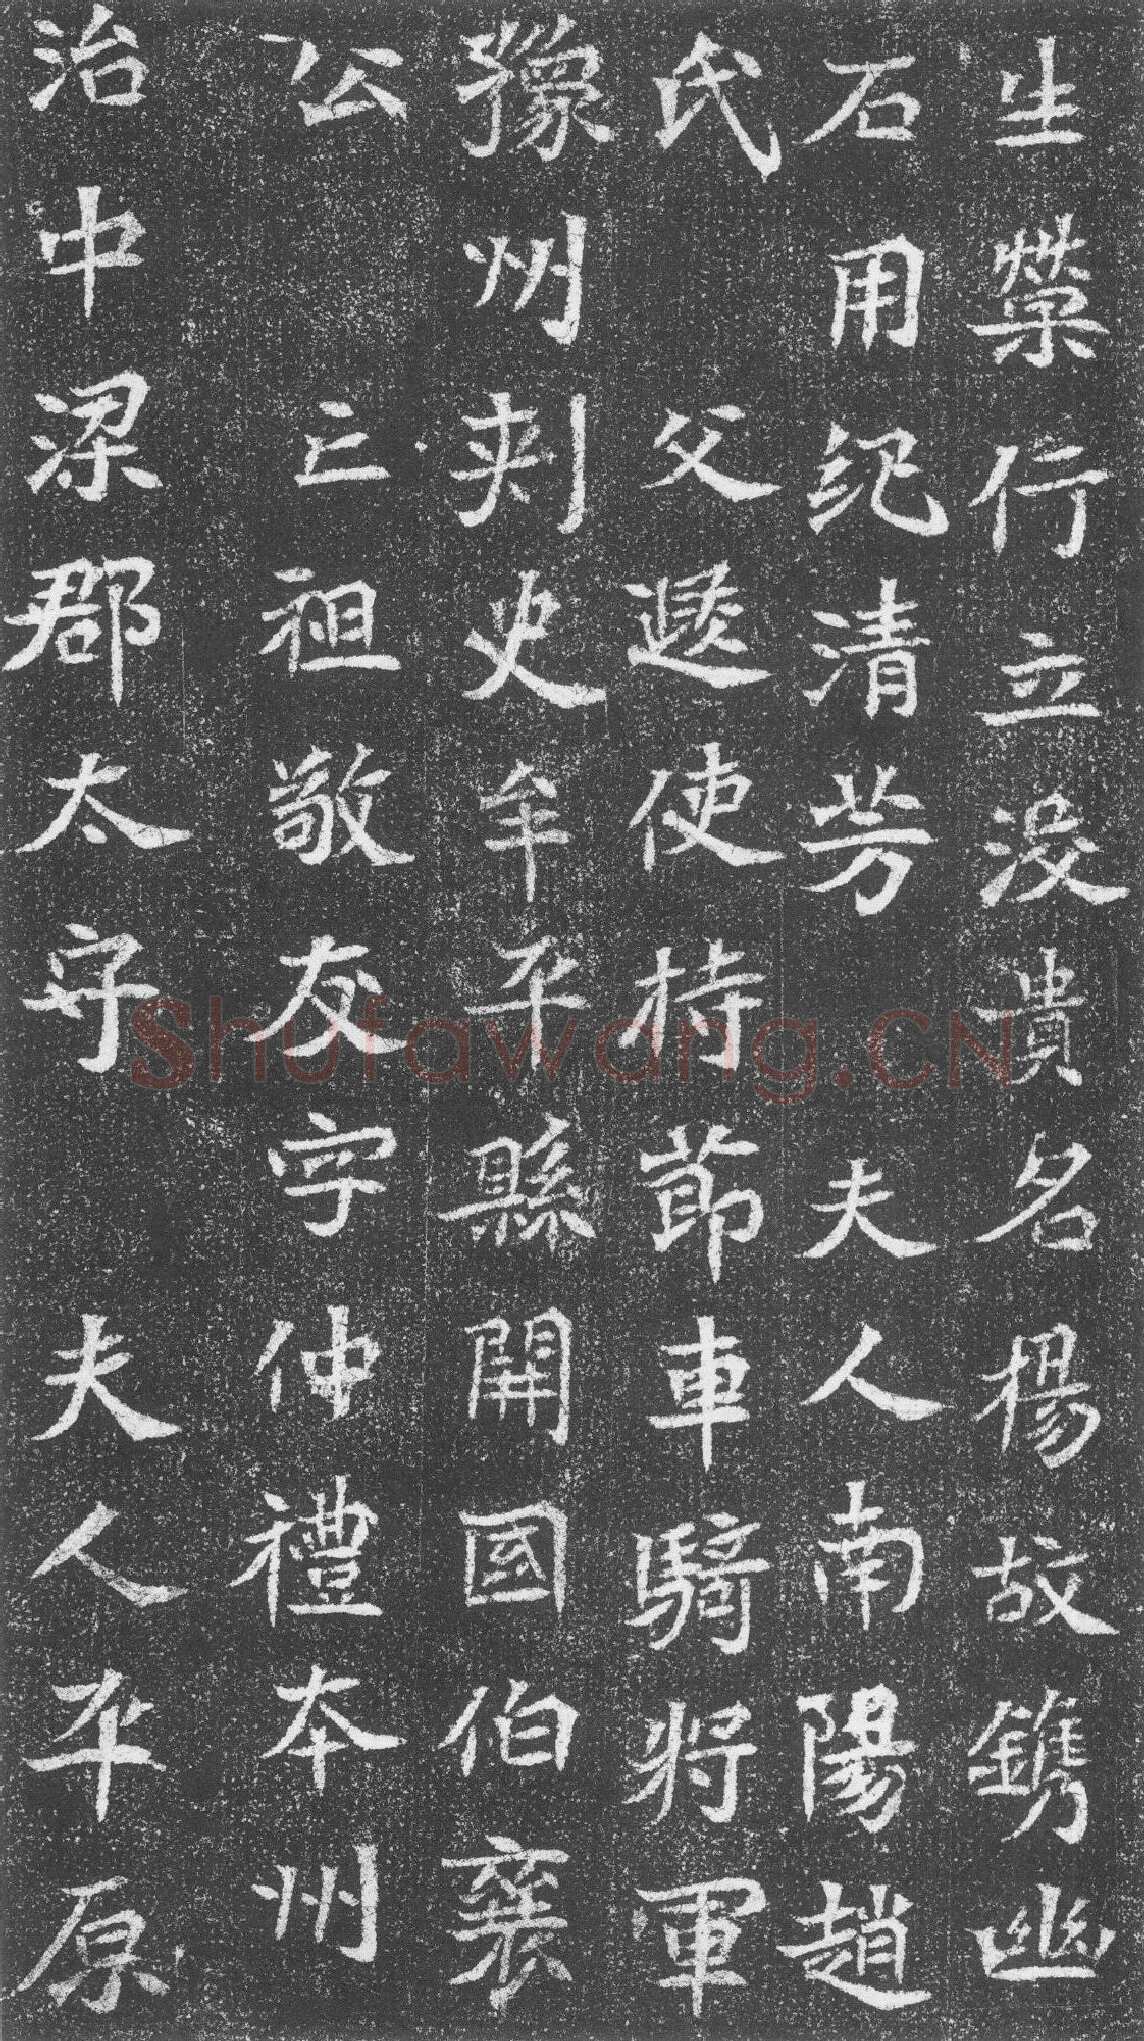 生榮行立没貴名楊故鐫幽
石用紀清芳 夫人南陽趙
氏 父遐使持節車騎將軍
豫州刺史牟平縣開國伯襄
公 亡祖敬友字仲禮本州
治中梁郡太守 夫人平原
Shufawang.CN